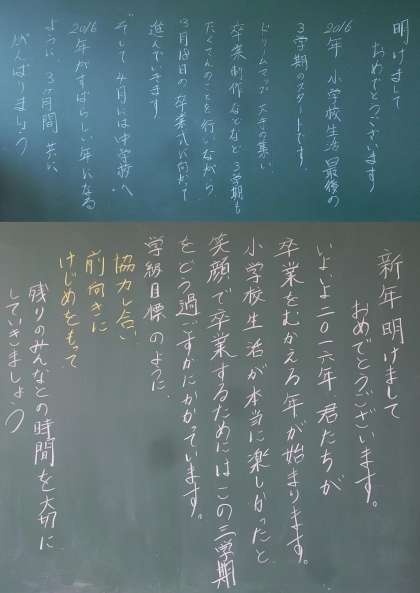 明けまして
おめでとうございます
2016年 小学校生活 最後の
3学期のスタートです。
ドリームマップ、大きな集い、
卒業制作などなど 3学期も
たくさんのことを行いながら
3月 日の卒業式に向けて
進んでいきます
そして4月には中学校へ
2016年がすばらしい年になる
ように、3ヶ月間 共に
がんばりましょう
新年明けまして
おめでとうございます。
いよいよ二〇一六年、君たちが
卒業をむかえる年が始まります。
小学校生活が本当に楽しかったと
笑顔で卒業するためにはこの三学期
をどう過ごすかにかかっています。
学級目標のように、
協力し合い
前向きに
けじめをもって
残りのみんなとの時間を大切に
していきましょう